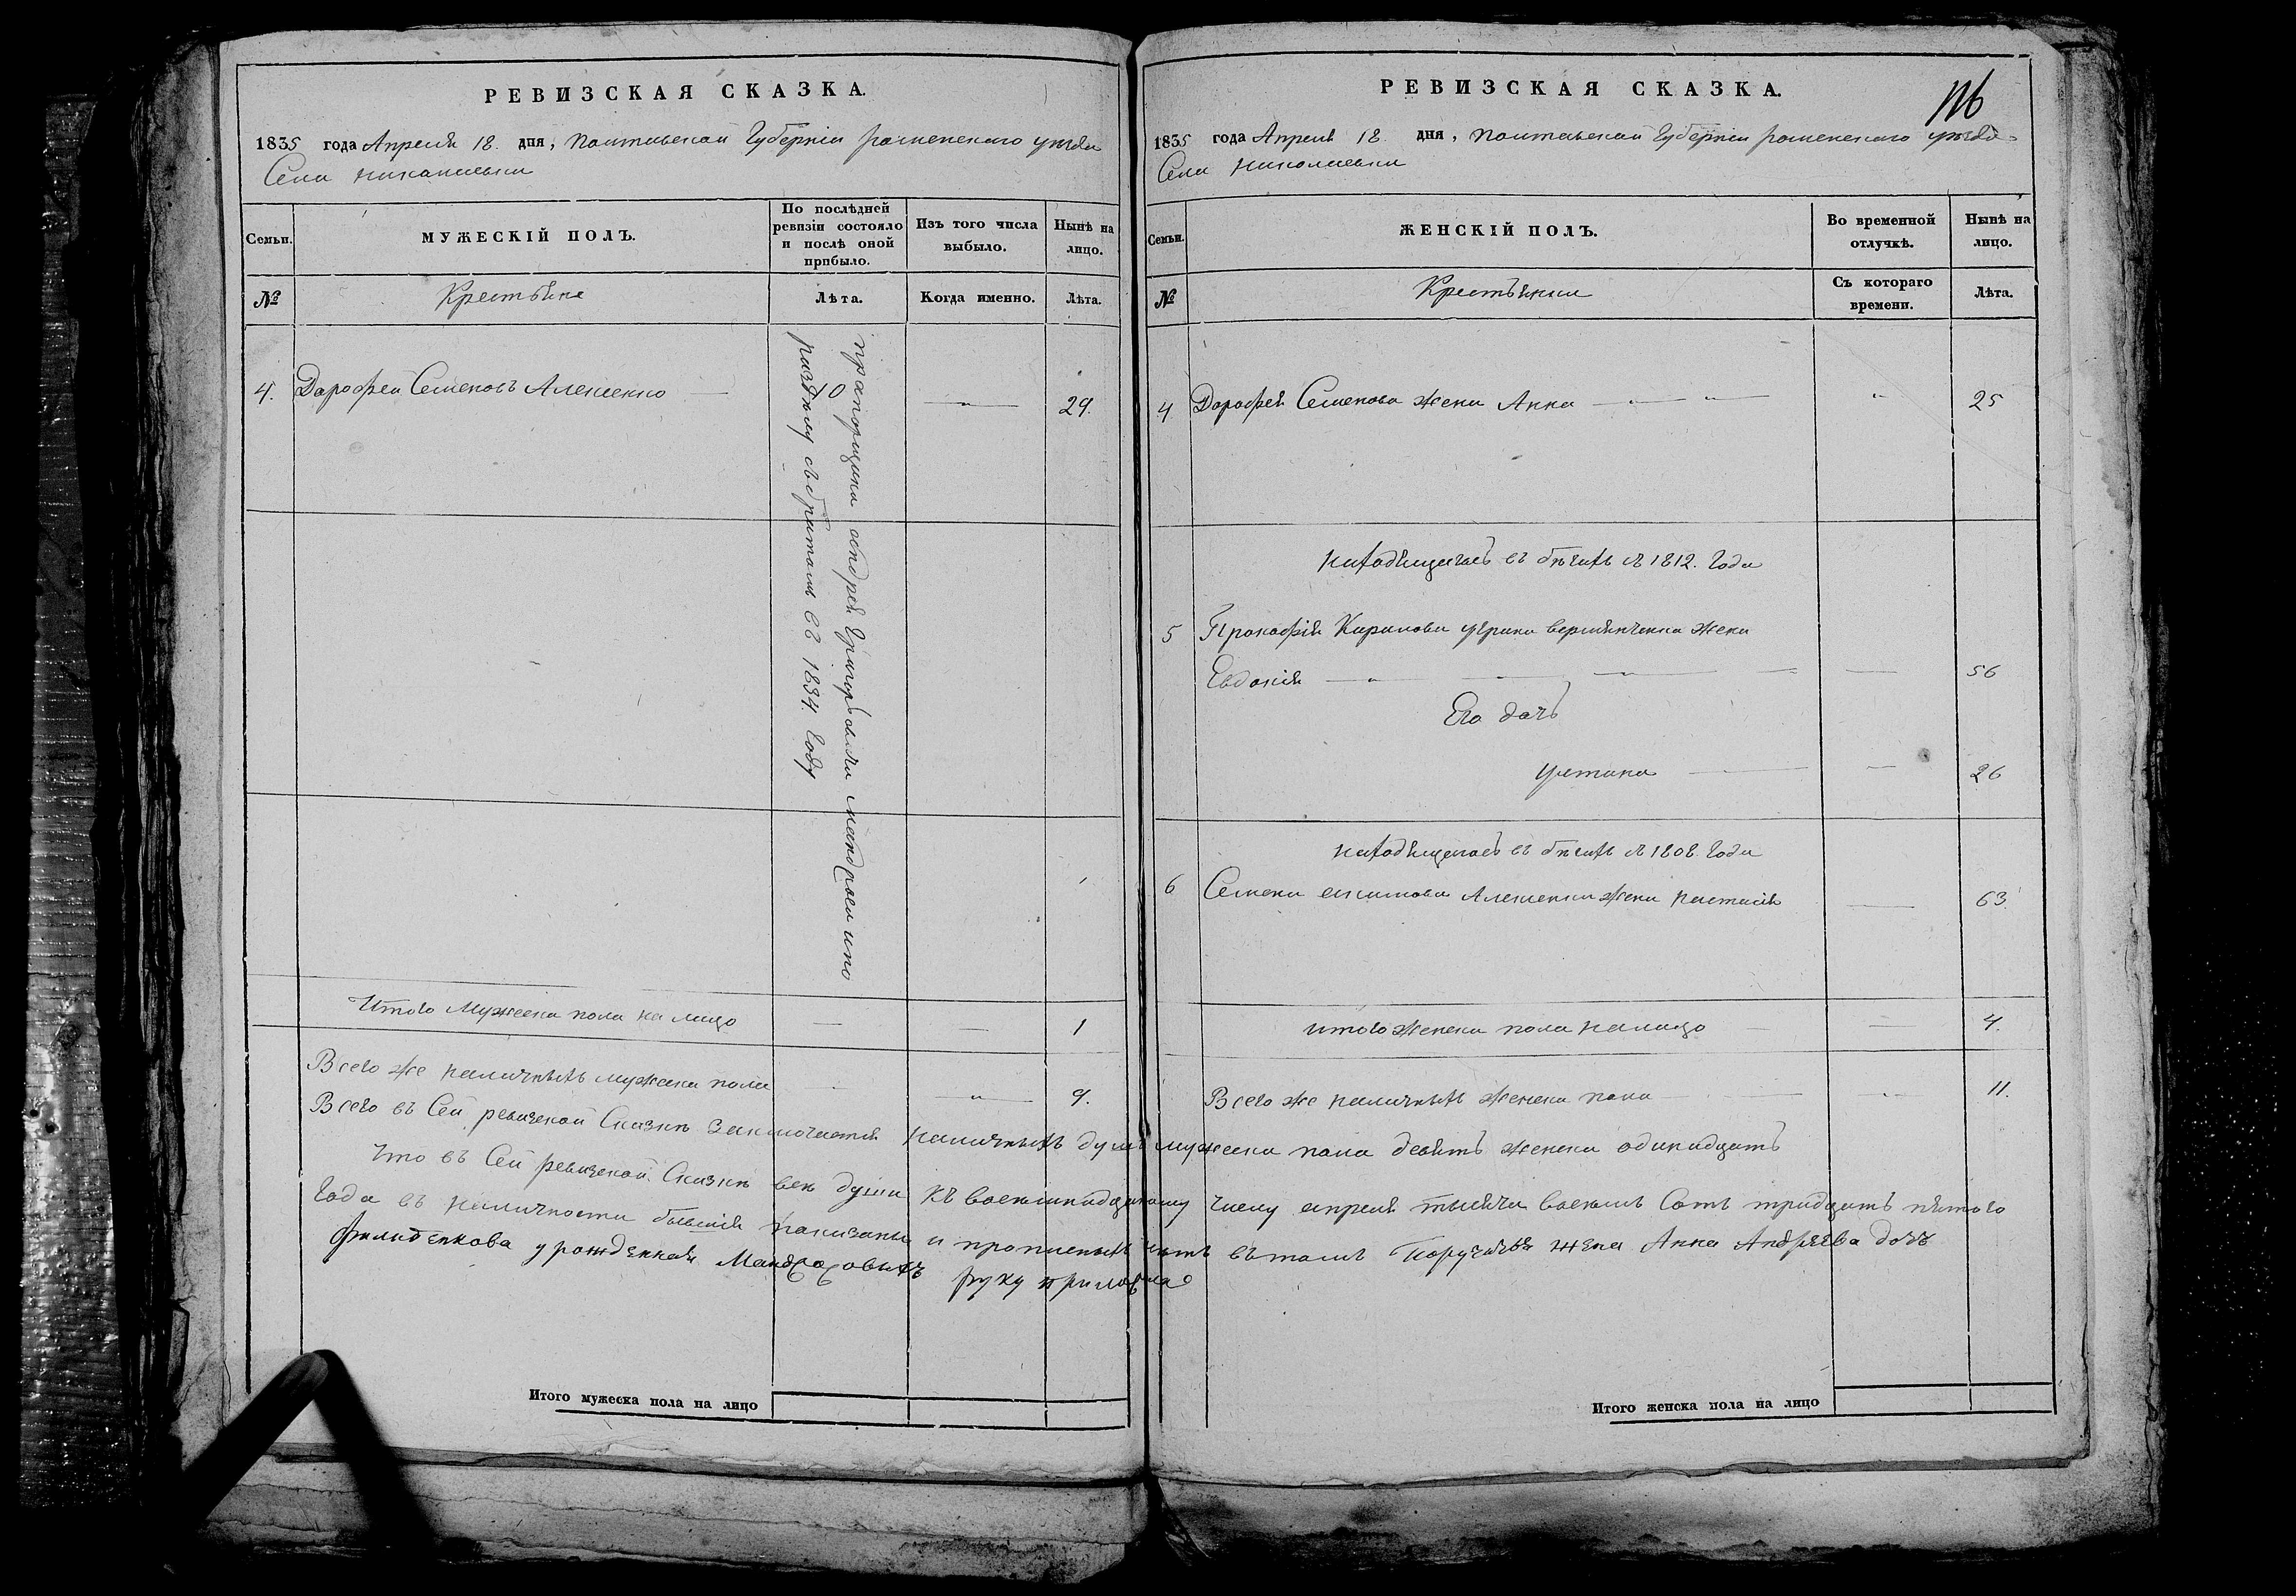 РЕВИЗСКАЯ СКАЗКА.
1835 года Апреля 18. дня, Полтавской Губернїи роменского уезда
Села Николаевки
Семьи.
МУЖЕСКІЙ ПОЛЪ.
По послѣдней ревизіи состояло и послѣ оной прибыло.
Изъ того числа выбыло.
Нынѣ на лицо.
№
Крестьяне
Лѣта.
Когда именно.
Лѣта.
4. Дорофей Семеновъ Алексенко
29.
прапорщика андрея Григорьевича мандро
розделу с братом въ 1834. году
Итого Мужеска пола на лицо — — 1
Всего же наличныхъ мужеска пола 9.
РЕВИЗСКАЯ СКАЗКА.
116
1835 года Апреля 18. дня, Полтавской Губернїи роменского уезда
Села Николаевки
Семьи.
ЖЕНСКІЙ ПОЛЪ.
Во временной отлучкѣ.
Нынѣ на лицо.
№
Крестьянки
Съ котораго времени.
Лѣта.
4 Дорофея Семенова жена Анна 25
находящегось въ бегахъ с 1812. Года
5 Прокофїя Кирилова жена
Евдокїя 56
Его дочь
устина 26
находящегось въ бегахъ с 1808. Года
6 Семена Алексенка жена настасїя 63.
итого женска пола налицо — 4.
Всего же наличныхъ женска пола 11.
Всего въ Сей ревизской Сказке заключается наличныхъ душъ мужеска пола девять женска одинадцать
Что въ Сей ревизской Сказке все души къ восемнадцатому числу апреля тысяча восемь сотъ тридцать пятого
Года въ наличности бывшїя показаны и прописныхъ нетъ въ томъ Поручичья жена Анна Андреева дочь
урожденная руку приложила
Итого мужеска пола на лицо
Итого женска пола на лицо